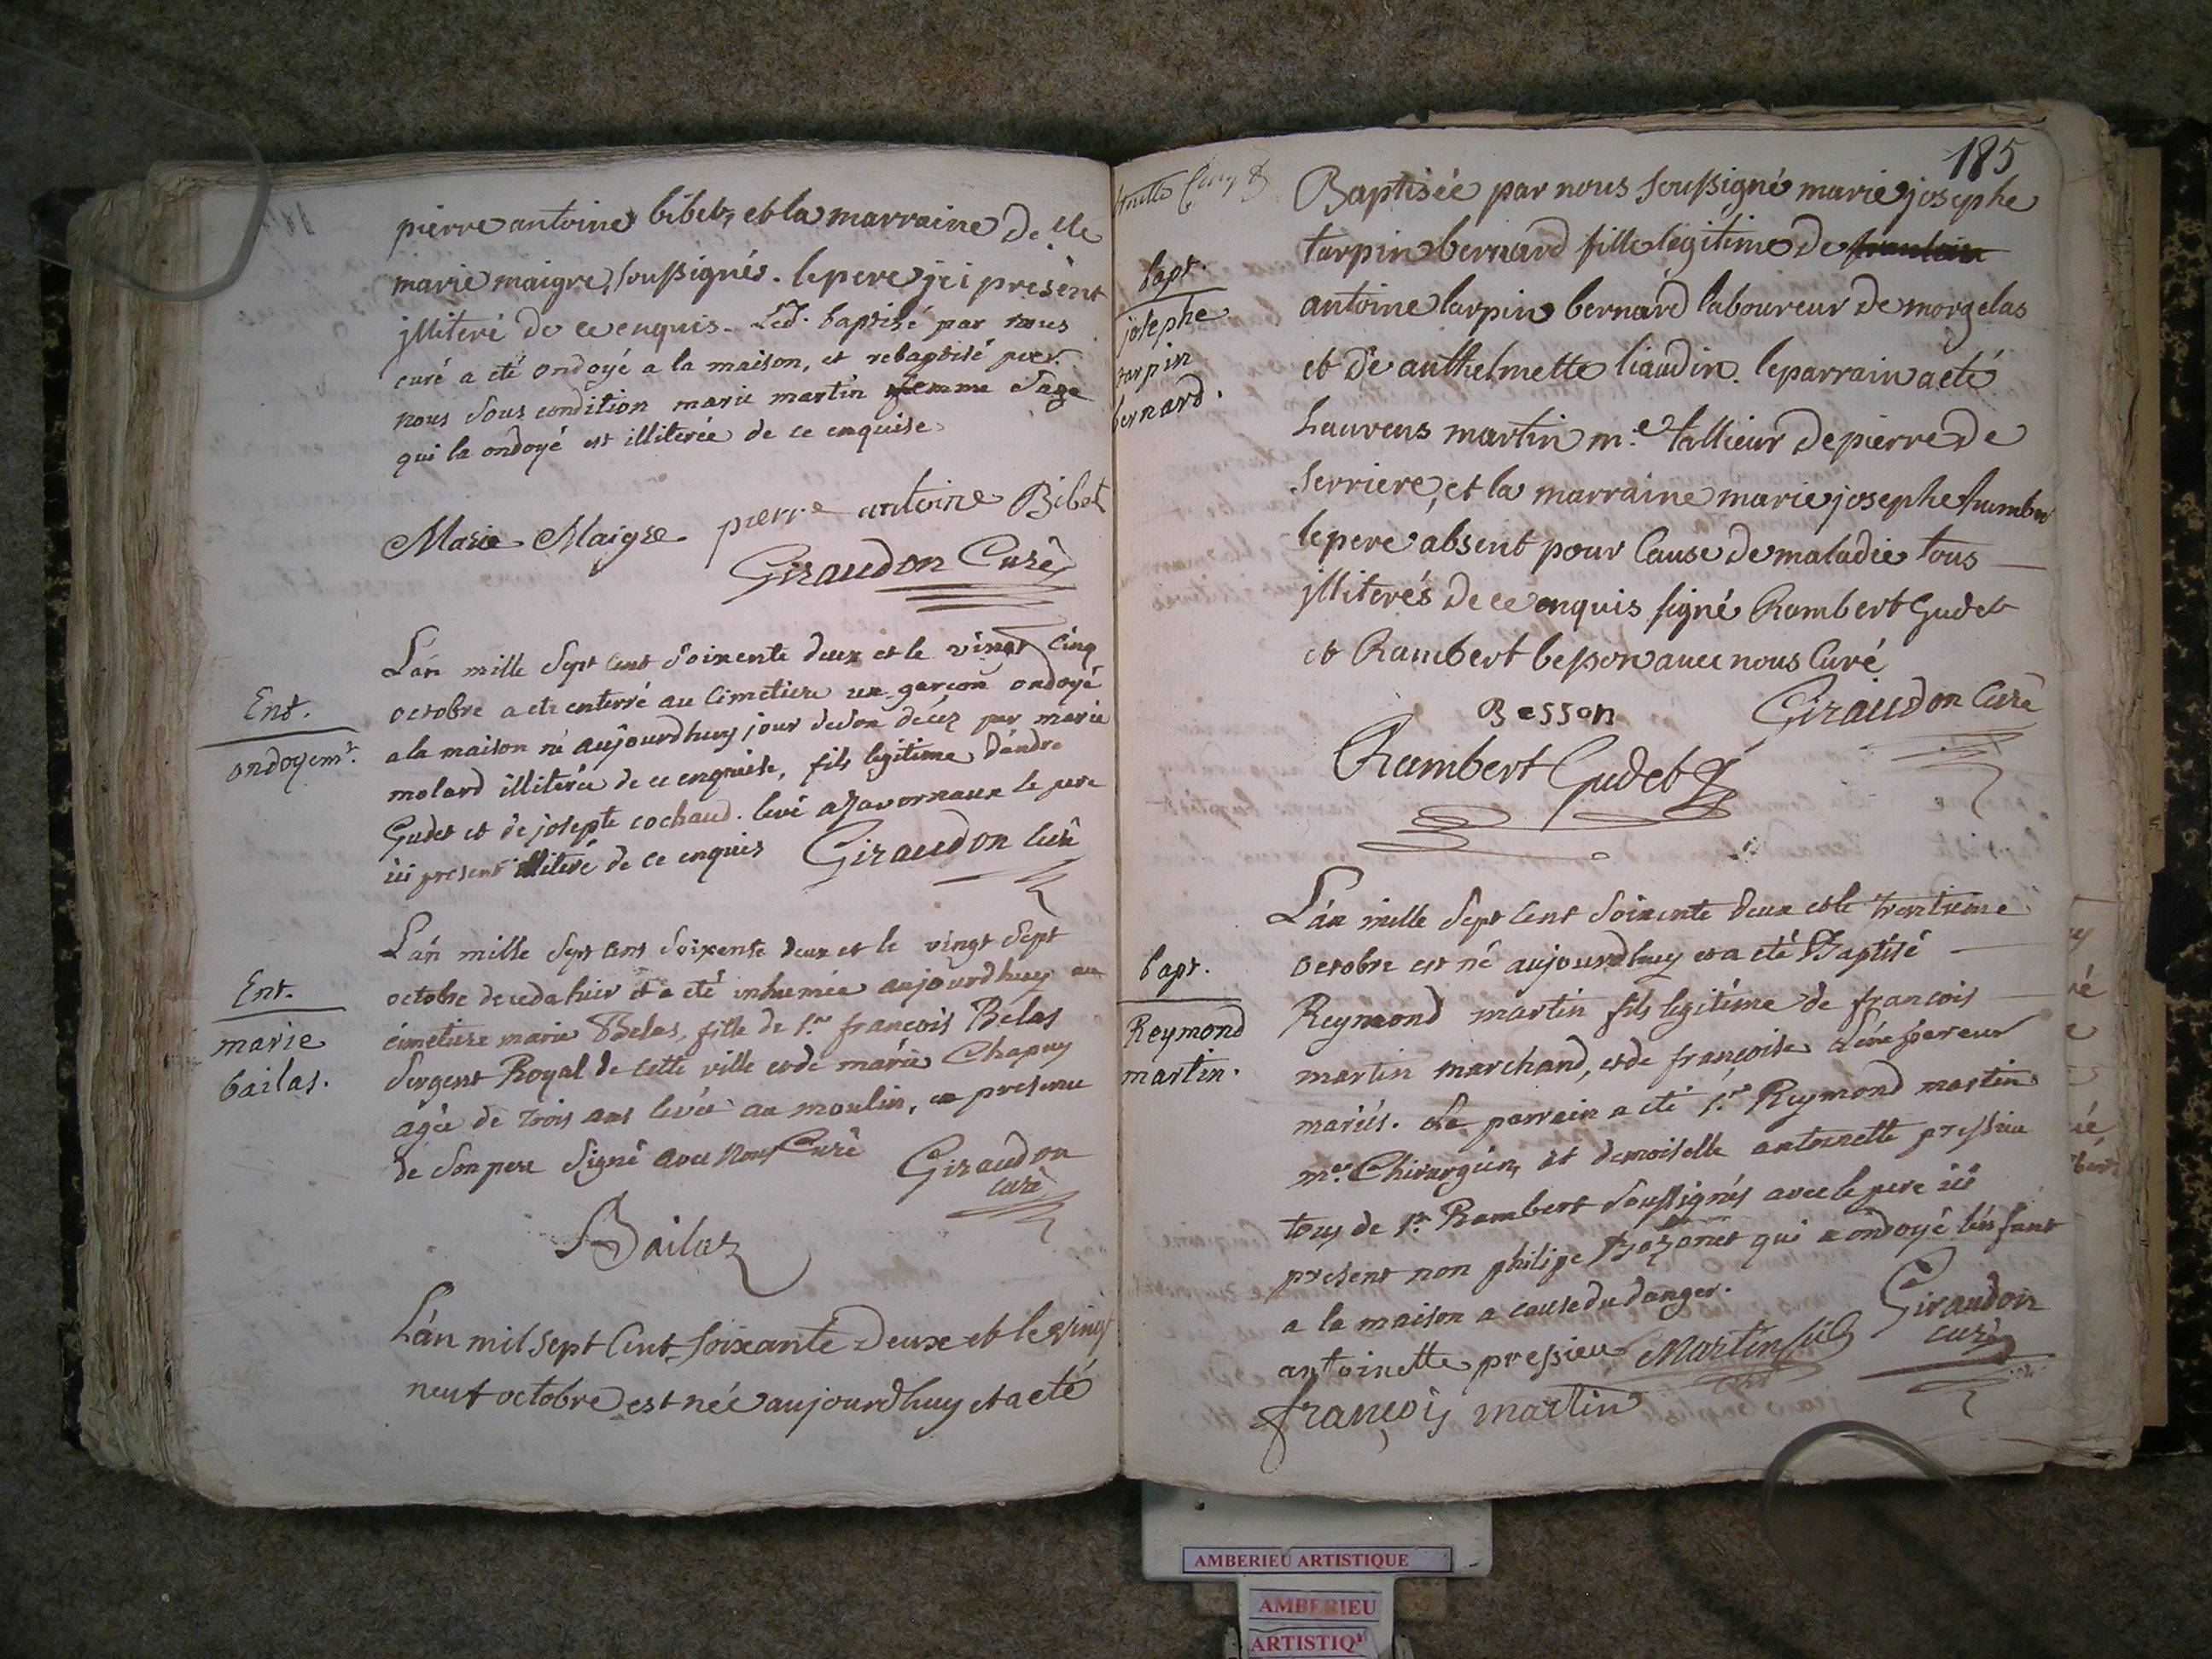 pierre antoine bibet, et la marraine de.lle
marie maigre, soussignés. le pere jci présent
jlliteré de ce enquis. Led. baptisé par nous
curé a eté ondoyé a la maison, et rebaptisé par
nous sous condition marie martin femme sage
qui la ondoyé est illiterée de ce enquise
Marie Maigre pierre antoine Bibet
Giraudon Curé
Ent.
ondoyemt.
L'an mille sept cent soixente deux et le vingt cinq
octobre a eté enterré au cimetiere un garçon ondoyé
a la maison né aujourdhuy jour de son décez par marie
molard illiterée de ce enquise, fils legitime d'andre
Gudet et de josepte cochaud. levé a Javornaux le pere
ici present illiteré de ce enquis Giraudon curé
Ent.
marie
bailas.
L'an mille sept cens soixente deux et le vingt sept
octobre deceda hier et a eté inhumée aujourdhuy au
cimetiere marie Belas, fille de sr. françois Belas
sergent Royal de cette ville et de marie Chapuy
agée de trois ans levée au moulin, en presence
de son pere signé avec nous Curé Giraudon
curé
Bailaz
L'an mil sept cent soixante deux et le vingt
neuf octobre est née aujourdhuy et a eté
185
bapt.
josephe
tarpin
bernard.
Baptisée par nous soussigné marie josephe
tarpin bernard fille legitime de
antoine tarpin bernard laboureur de morgelas
et de anthelmette liaudin. le parrain a eté
Laurens martin m.e tallieur de pierre de
serriere, et la marraine marie josephe
le pere absent pour cause de maladie tous
jlliterés de ce enquis signé Rambert Gudet
et Rambert besson avec nous curé
Besson Giraudon curé
Rambert Gudet
bapt.
Reymond
martin.
L'an mille sept cent soixente deux et le trentieme
octobre est né aujourdhuy et a eté Baptisé
Reymond martin fils legitime de françois
martin marchand, et de françoise
mariés. Le parrain a eté sr. Reymond martin
me. Chirurgien, et demoiselle antoinette pressieu
tous de st. Rambert soussignés avec le pere ici
present non philipe Bozonet qui a ondoyé l'enfant
a la maison a cause du danger.
antoinette pressieu Martin fils Giraudon
curé
françois martin
AMBERIEU ARTISTIQUE
AMBERIEU
ARTISTIQ